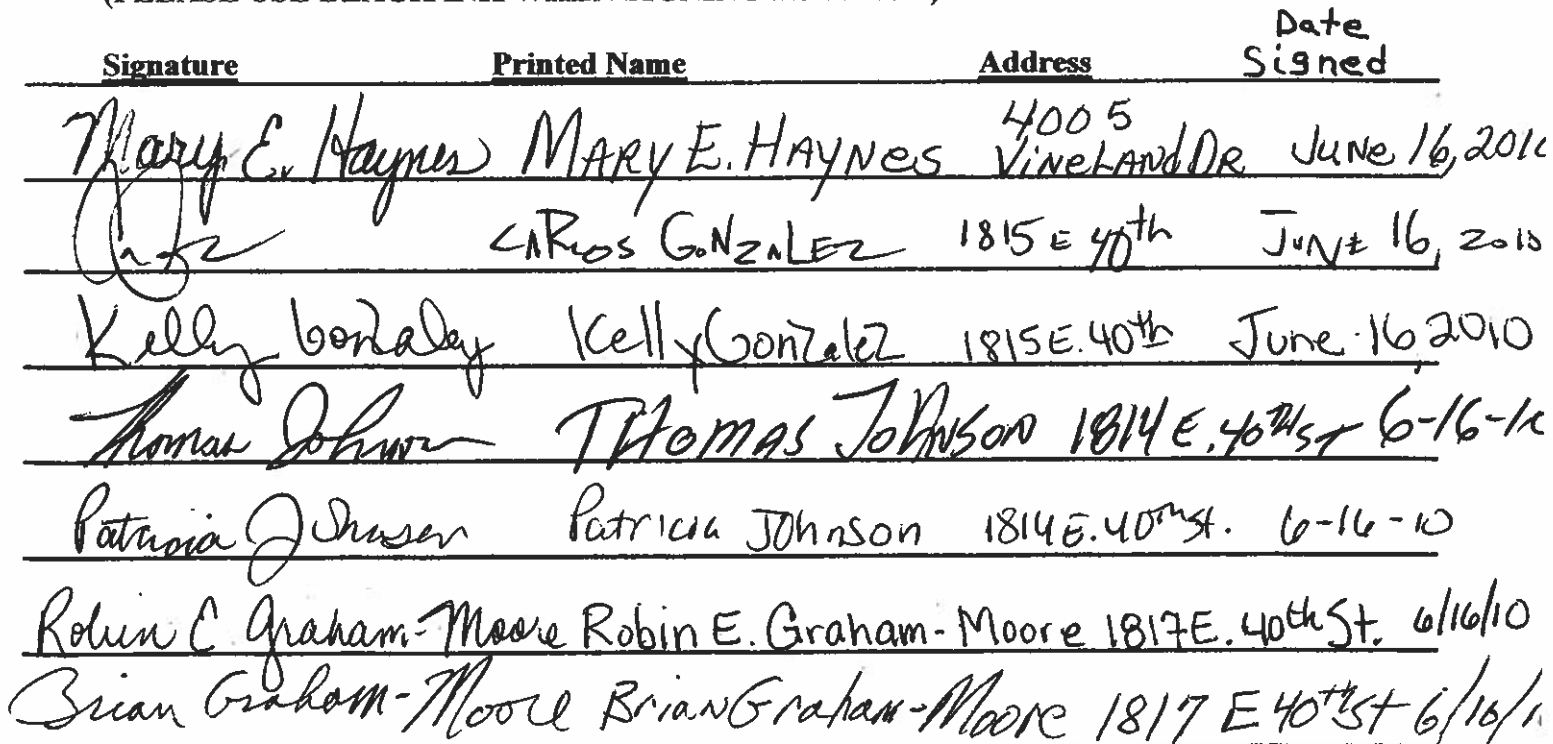 Date
Signature Printed Name Address Signed
4005
Mary E. Haynes MARY E. HAYNES VINELAND DR. JUNE 16, 201
CARLOS GONZALEZ 1815 E 40th JUNE 16, 2010
Kelly Gonzalez Kelly Gonzalez 1815 E. 40th June 16, 2010
Thomas Johnson THOMAS JOHNSON 1814 E. 40TH ST 6-16-1
Patricia Johnson Patricia JOhnson 1814 E. 40TH St. 6-16-10
Robin E Graham-Moore Robin E. Graham-Moore 1817 E. 40th St. 6/16/10
Brian Graham-Moore Brian Graham-Moore 1817 E 40th St 6/16/1